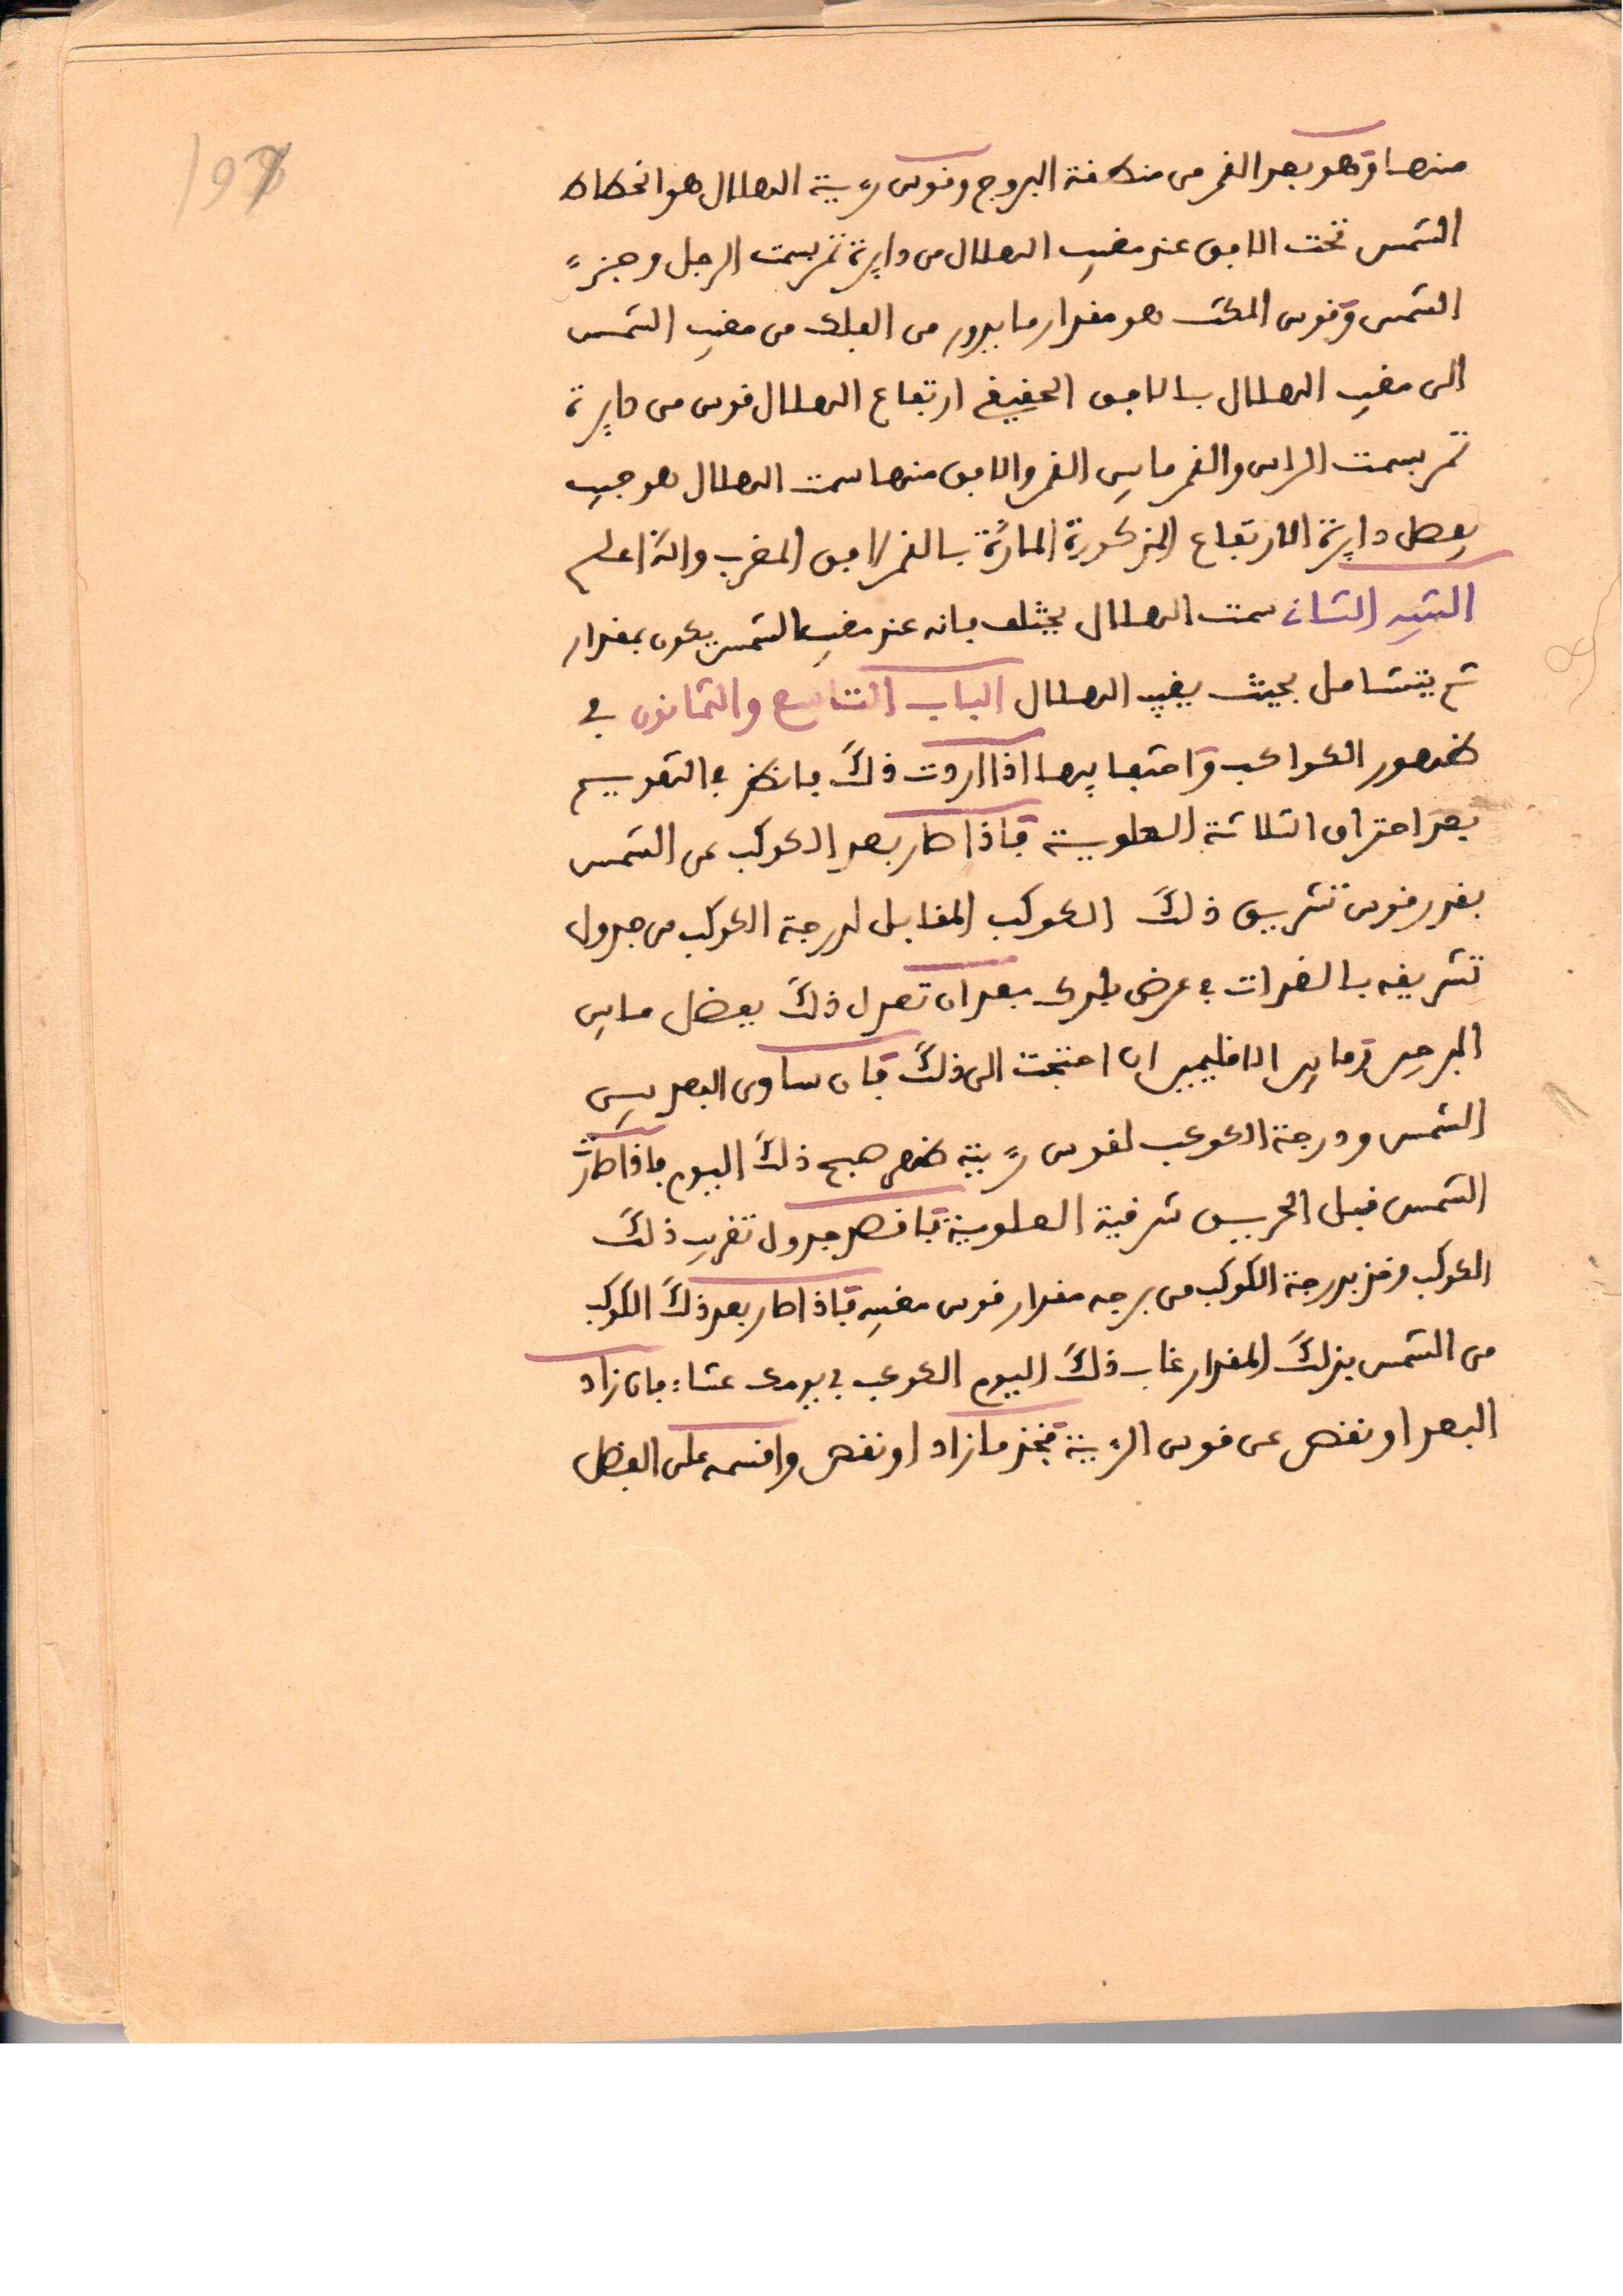 197
منها وهو بعد القمر من منطقة البروج وقوس رءية الهلال هو انحطاط
الشمس تحت الافق عند مغيب الهلال من دايرة تمر بسمت الرجل وجزء
الشمس وقوس المكث هو مقدار ما يدور من الفلك من مغيب الشمس
الى مغيب الهلال بالافق الحقيقي ارتفاع الهلال قوس من دايرة
تمر بسمت الراس والقمر ما بين القمر والافق منها سمت الهلال هو جيب
فصل دايرة الارتفاع المذكورة المارة بالقمر افق المغرب والله اعلم
التنبيه الثاني سمت الهلال يختلف فانه عند مغيب الشمس يكون بمقدار
ثم يتشامل بحيث يغيب الهلال الباب التاسع والثمانون في
ظهور الكواكب واختفايها اذا اردت ذلك فانظر في التقويم
بعد احتراق الثلاثة العلوية فاذا صار بعد الكوكب عن الشمس
بقدر قوس تشريق ذلك الكوكب المقابل لدرجة الكوكب من جدول
تشريقه بالغدات في عرض بلدك بعد ان تعدل ذلك بفضل ما بين
البرجين وما بين الاقليمين ان احتجت الى ذلك فان ساوى البعد بين
الشمس ودرجة الكوكب لقوس رءيته ظهر صبح ذلك اليوم فاذا صارت
الشمس قبل الحريق شرقية العلوية فاقصد جدول تغريب ذلك
الكوكب وخذ بدرجة الكوكب من برجه مقدار قوس مغيبه فاذا صار بعد ذلك الكوكب
من الشمس بذلك المقدار غاب ذلك اليوم الكوكب في يومك عشاء فان زاد
البعد او نقص عن قوس الرءية فخذ ما زاد او نقص واقسمه على الفضل